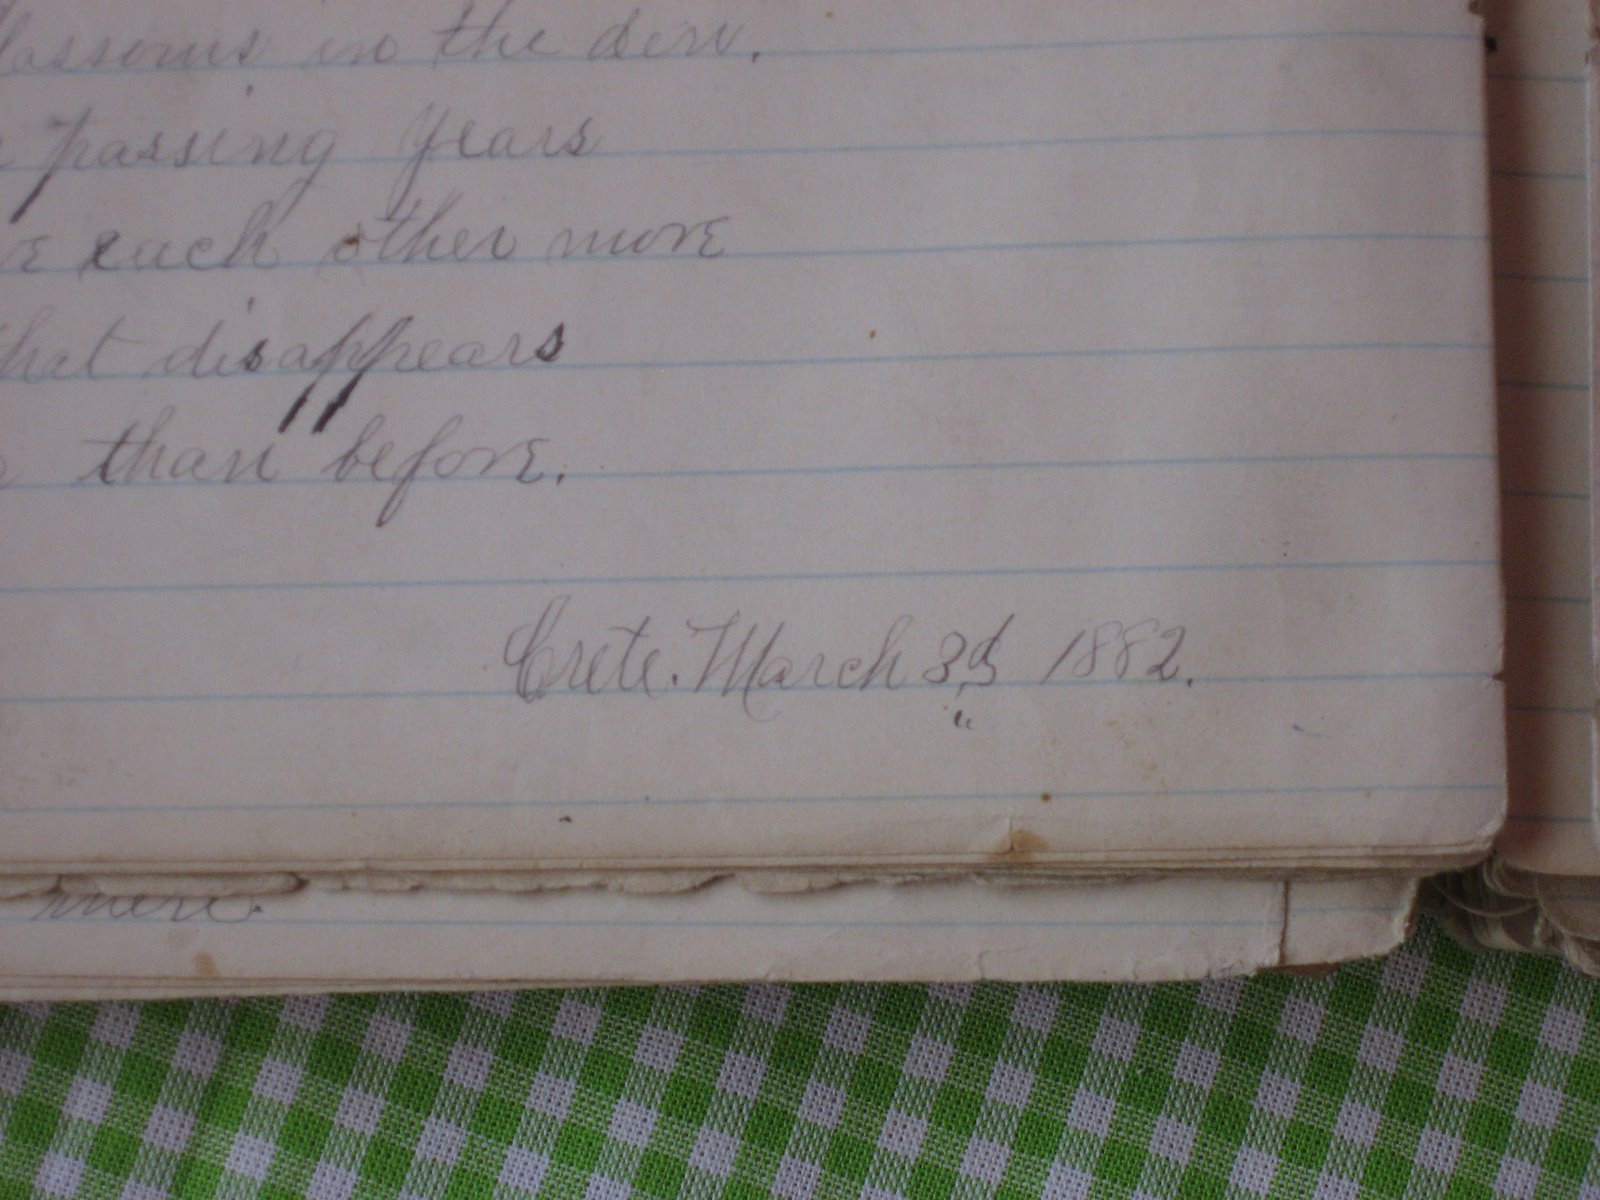 lossoms in the dew.
passing years
each other more
that disappears
than before.
Crete. March 3d 1882.
"